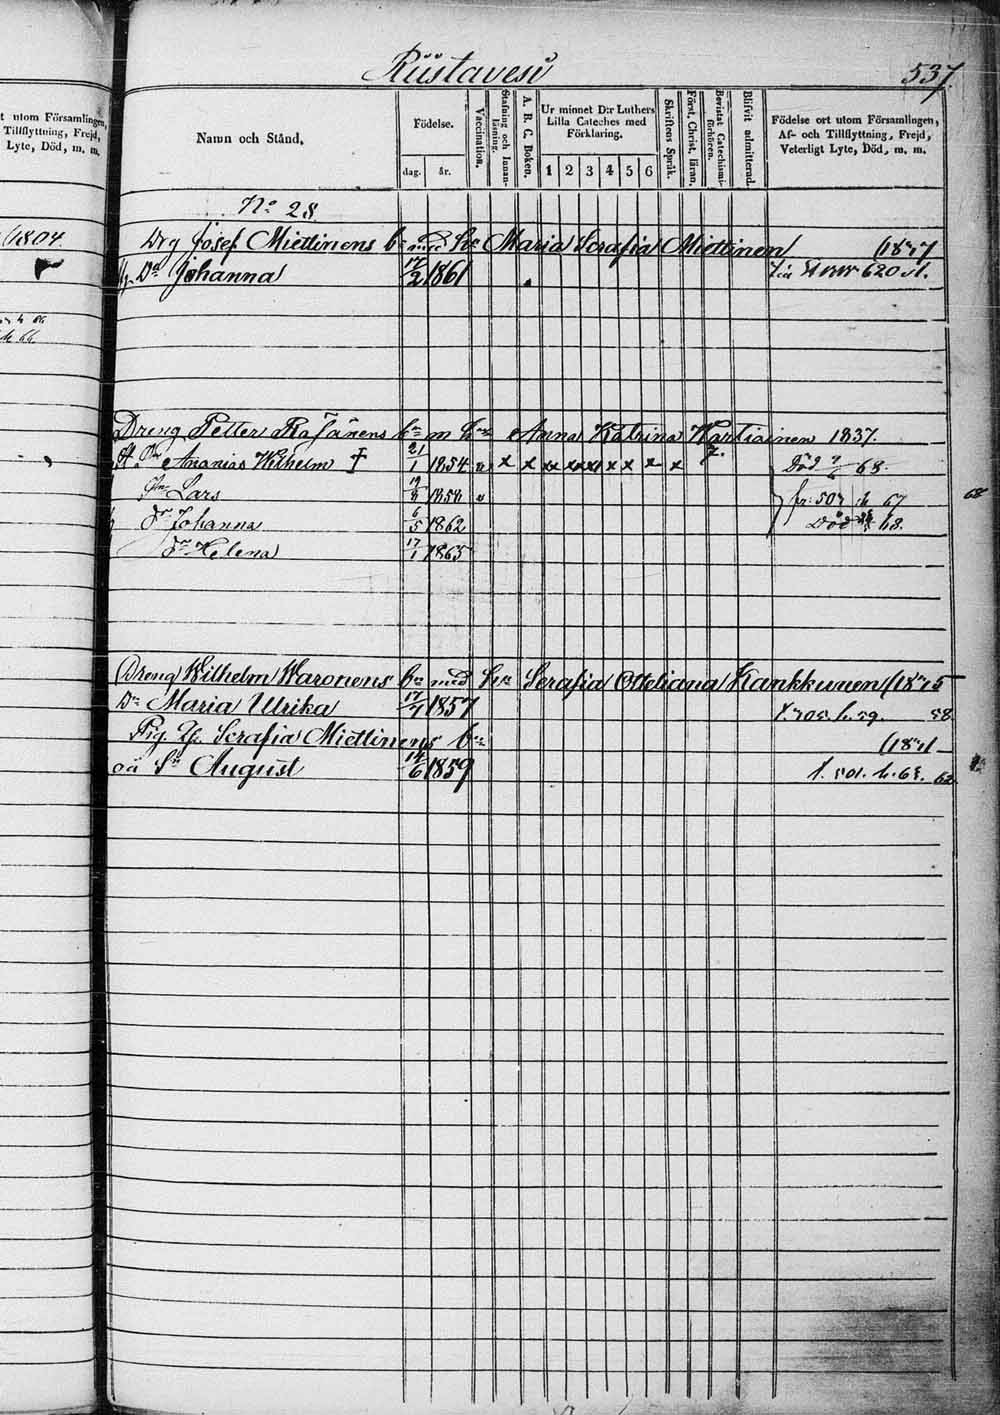 Rüstavesi
537.
t utom Församlingen,
Tillflyttning, Frejd,
Lyte, Död, m. m.
Namn och Stånd.
Födelse.
dag.
år.
Vaccination.
Stafning och Innan-läsning.
A. B. C. Boken.
Ur minnet D:r Luthers
Lilla Cateches med
Förklaring.
1 2 3 4 5 6
Skriftens Språk.
Först. Christ. läran.
Bevistat Catechismi-förhören.
Blifvit admitterad.
Födelse ort utom Församlingen,
Af- och Tillflyttning, Frejd,
Veterligt Lyte, Död, m. m.
No 28
1804.
Drg Josef Miettinens bn med hu Maria Serafia Miettinen
Dr Johanna 17/2 1861 620
Dreng Petter Räsänens bn m hu Anna Katrina Hartiainen 1837.
Ananias Wilhelm † 21/1 1854 x x x xx xxx x x x x Död 68.
Sn Lars 19/8 1858 fr. 507 67 68
Dr Johanna 6/5 1862 Död 68.
Dr Helena 17/1 1865
Dreng Wilhelm Waronens bn med hu Serafia Ottiliana Kankkunen
Dr Maria Ulrika 17/7 1857 58
Pig. Serafia Miettinens bn
oä Sn August 14/6 1859 62